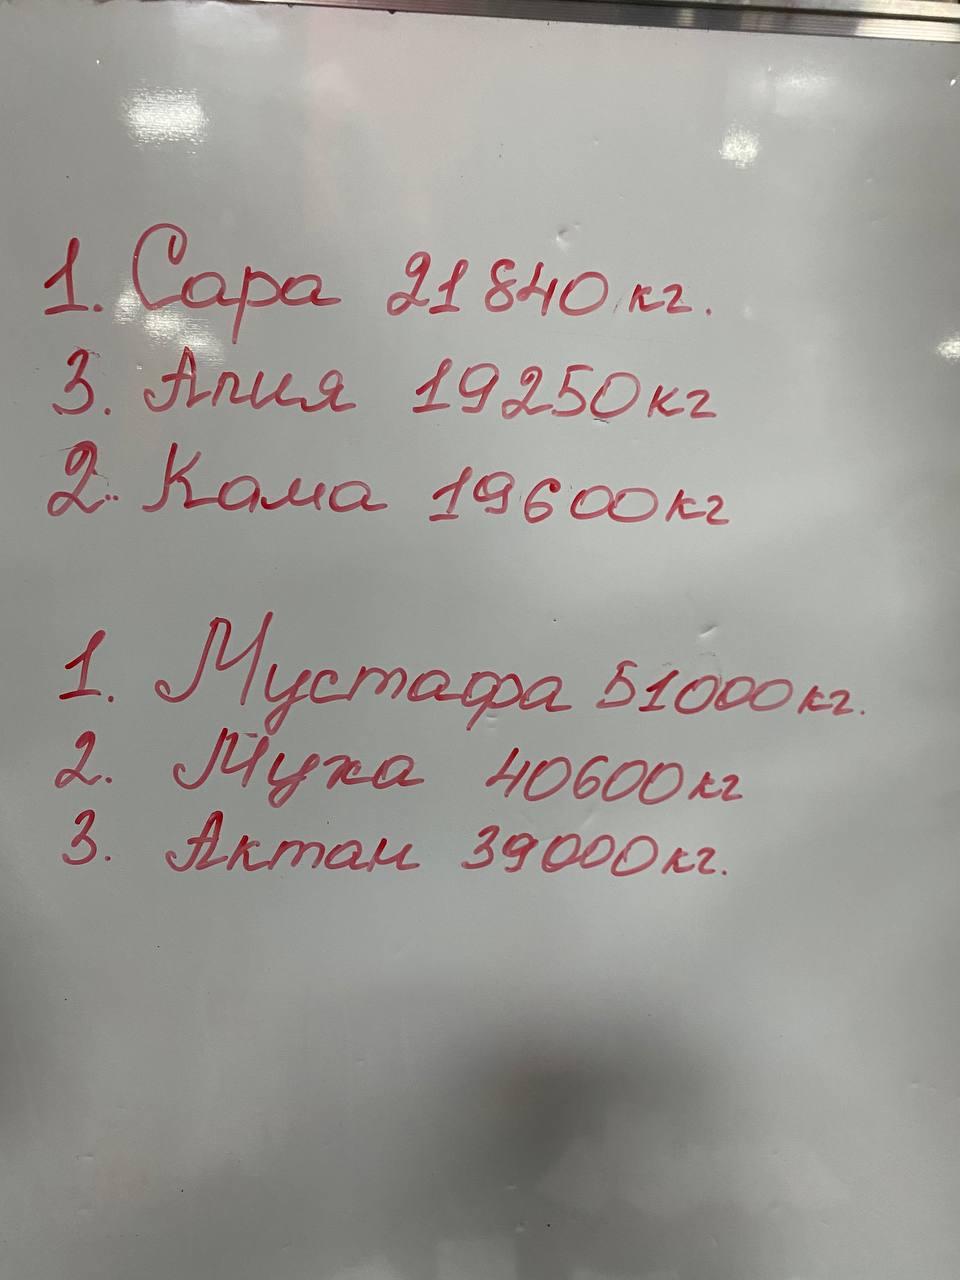 1. Сара 21840кг.
3. Алия 19250кг
2. Кама 19600кг
1. Мустафа 51000кг.
2. Муха 40600кг
3. Актан 39000кг.